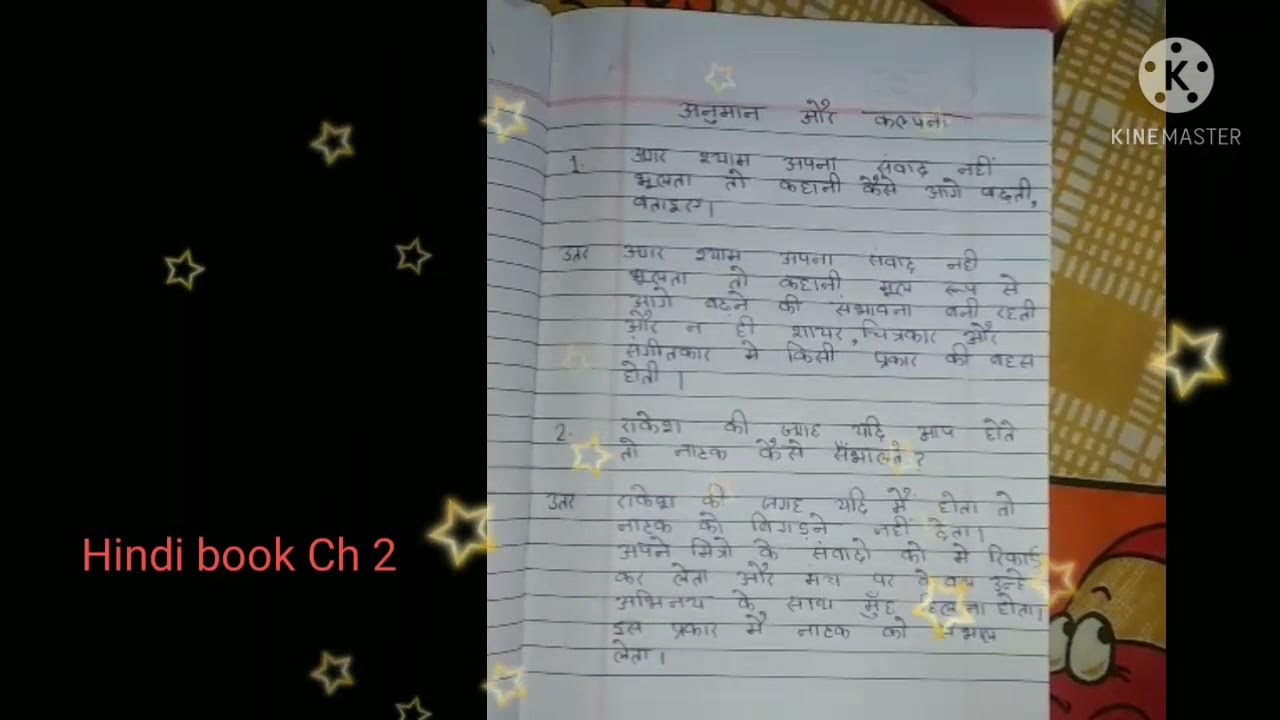 अनुमान और कल्पना
1. अगर श्याम अपना संवाद नहीं
भूलता तो कहानी कैसे आगे बढ़ती,
बताइए।
उतर अगर श्याम अपना संवाद नही
भूलता तो कहानी मूल रूप से
आगे बढ़ने की संभावना बनी रहती
और न ही शायर, चित्रकार और
संगीतकार मे किसी प्रकार की बहस
होती ।
2. राकेश की जगह यदि आप होते
तो नाटक कैसे सँभालते ?
उतर राकेश की जगह यदि मैं होता तो
नाटक को बिगड़ने नहीं देता।
अपने मित्रो के संवादो को मे रिकार्ड
कर लेता और मंच पर उन्हे
अभिनय के साथ मुँह होता।
इस प्रकार मैं नाटक को
लेता।
Hindi book Ch 2
K
KINEMASTER